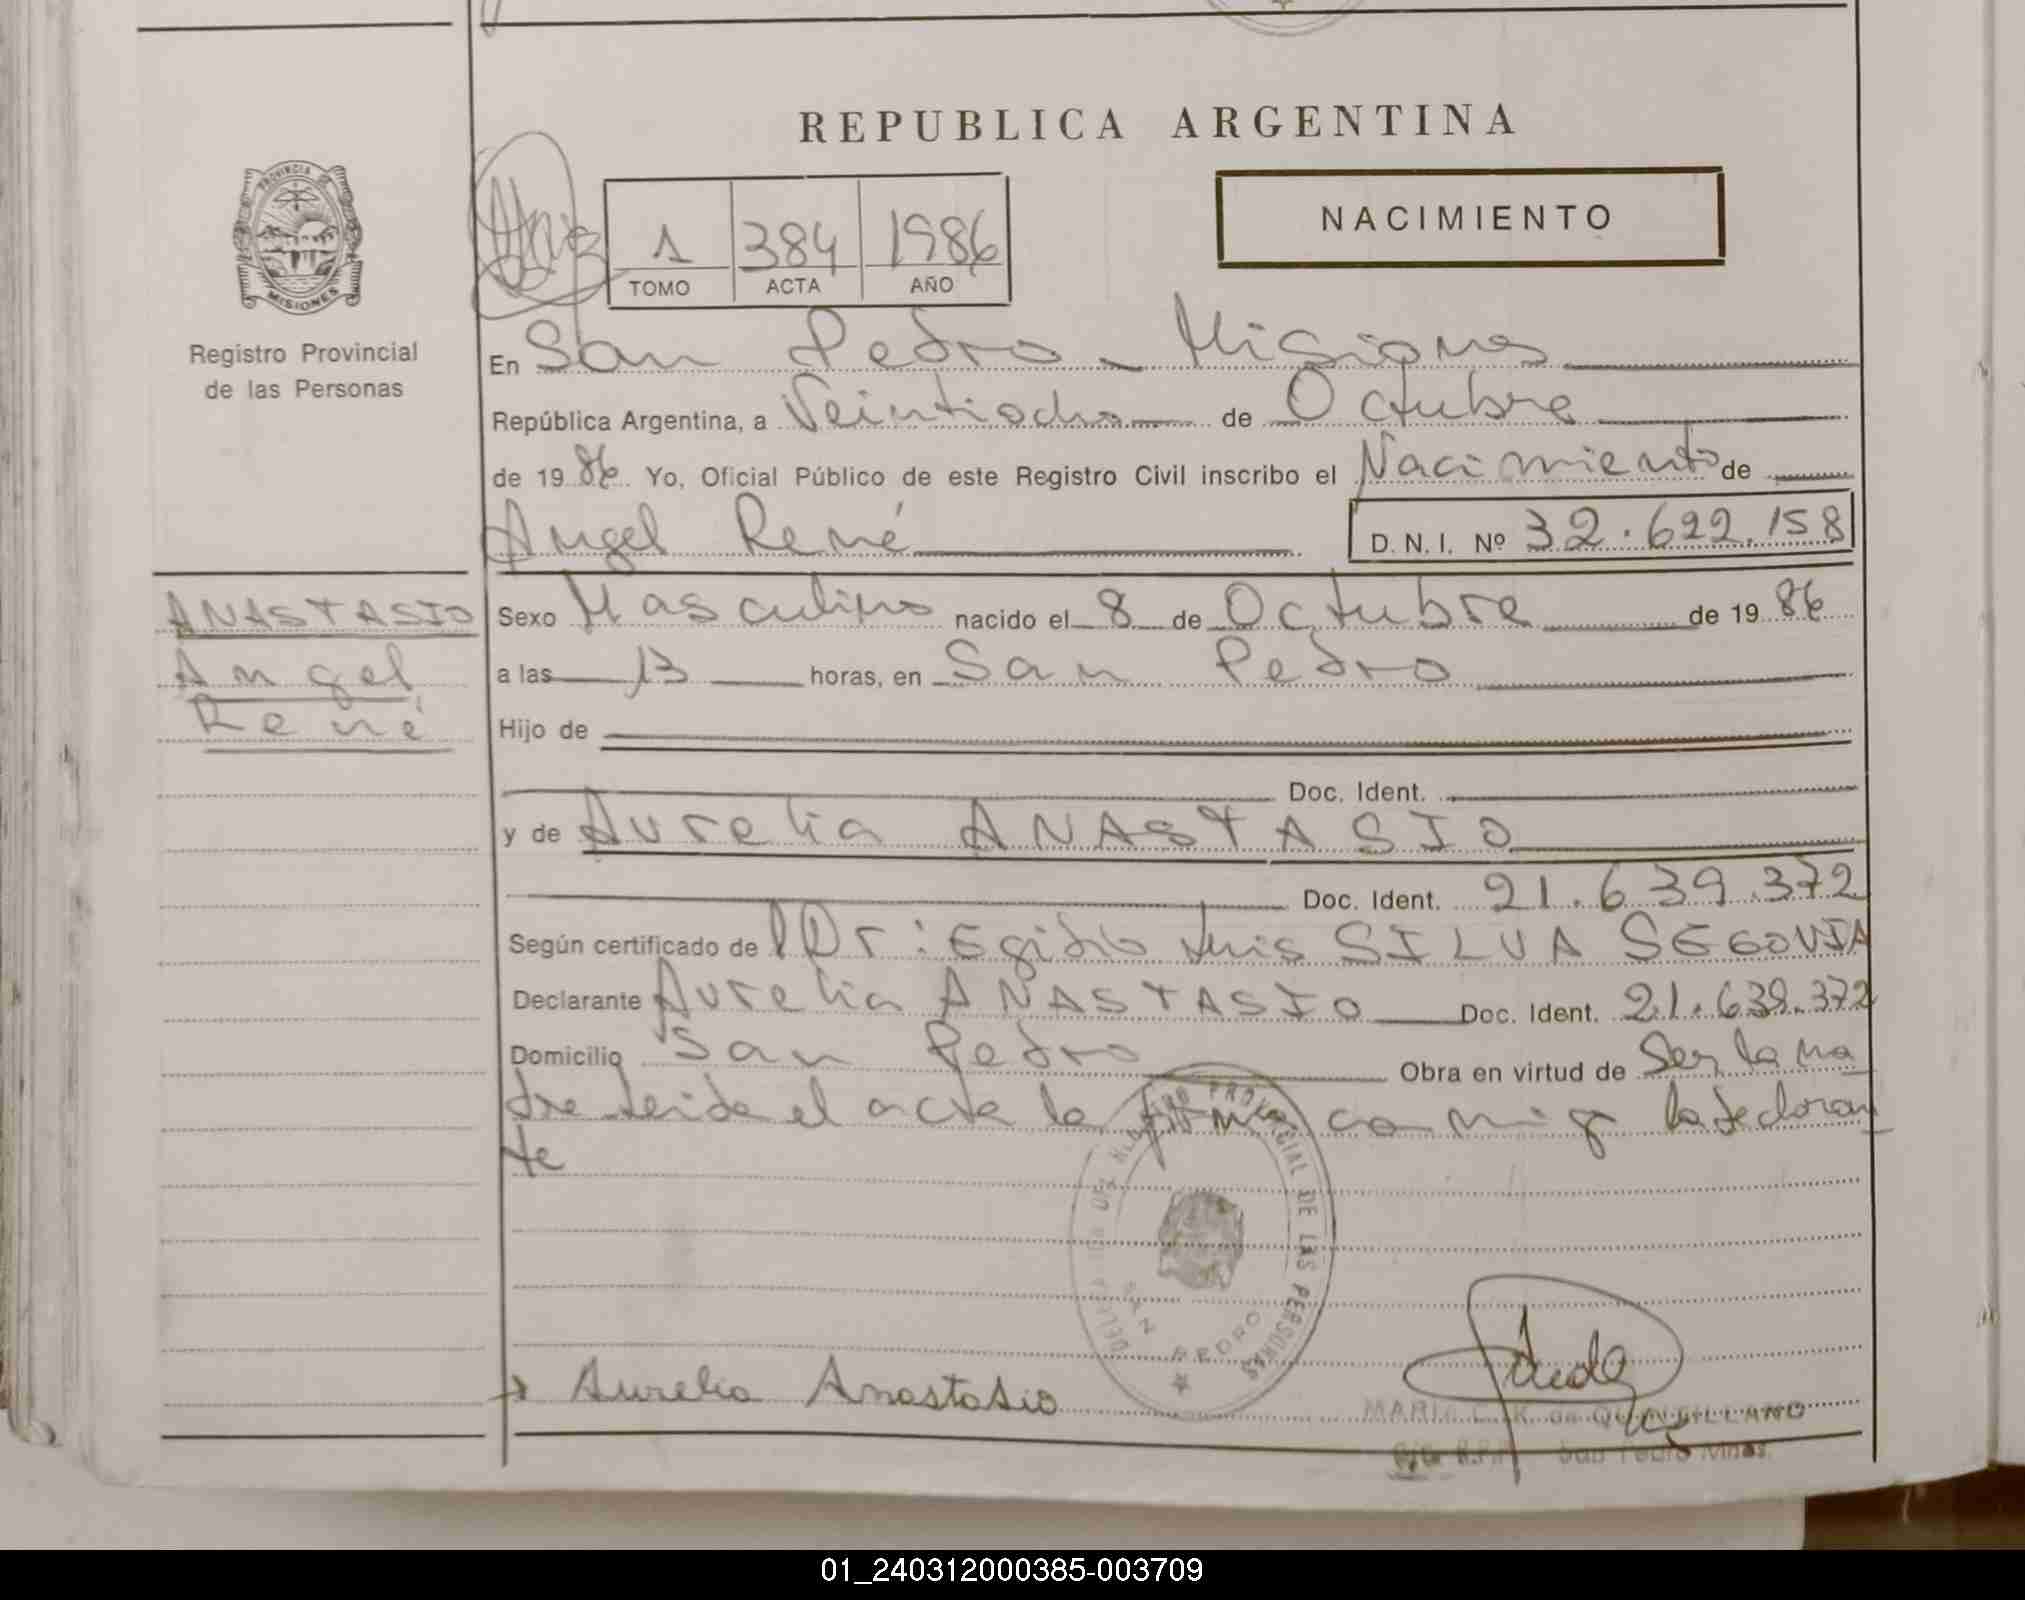 REPUBLICA ARGENTINA
NACIMIENTO
1 384 1986
TOMO ACTA AÑO
PROVINCIA DE MISIONES
Registro Provincial
de las Personas
En San Pedro - Misiones
República Argentina, a Veintiocho de Octubre
de 1986 Yo, Oficial Público de este Registro Civil inscribo el Nacimiento de
Angel René D.N.I. Nº 32.622.158
ANASTASIO
Angel
René
Sexo Masculino nacido el 8 de Octubre de 1986
a las 13 horas, en San Pedro
Hijo de
Doc. Ident.
y de Aurelia ANASTASIO
Doc. Ident. 21.639.372
Según certificado de Dr: Egidio Luis SILVA SEGOVIA
Declarante Aurelia ANASTASIO Doc. Ident. 21.639.372
Domicilio San Pedro Obra en virtud de Ser la ma
dre leida el acta la firma conmigo la declaran
te
REGISTRO PROVINCIAL DE LAS PERSONAS
SAN PEDRO
Aurelia Anastasio
MARIA C. K. de QUINTILLANO
R.P.P. San Pedro Mnes.
01_240312000385-003709